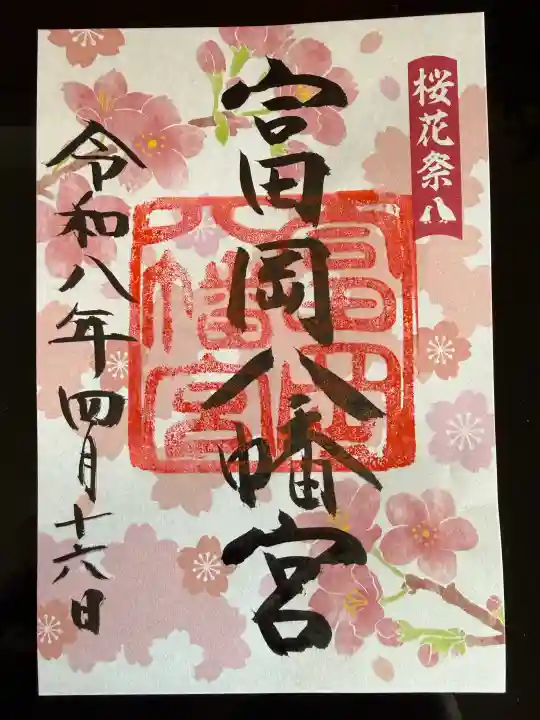 桜花祭
富岡八幡宮
富岡八幡宮
令和八年四月十六日